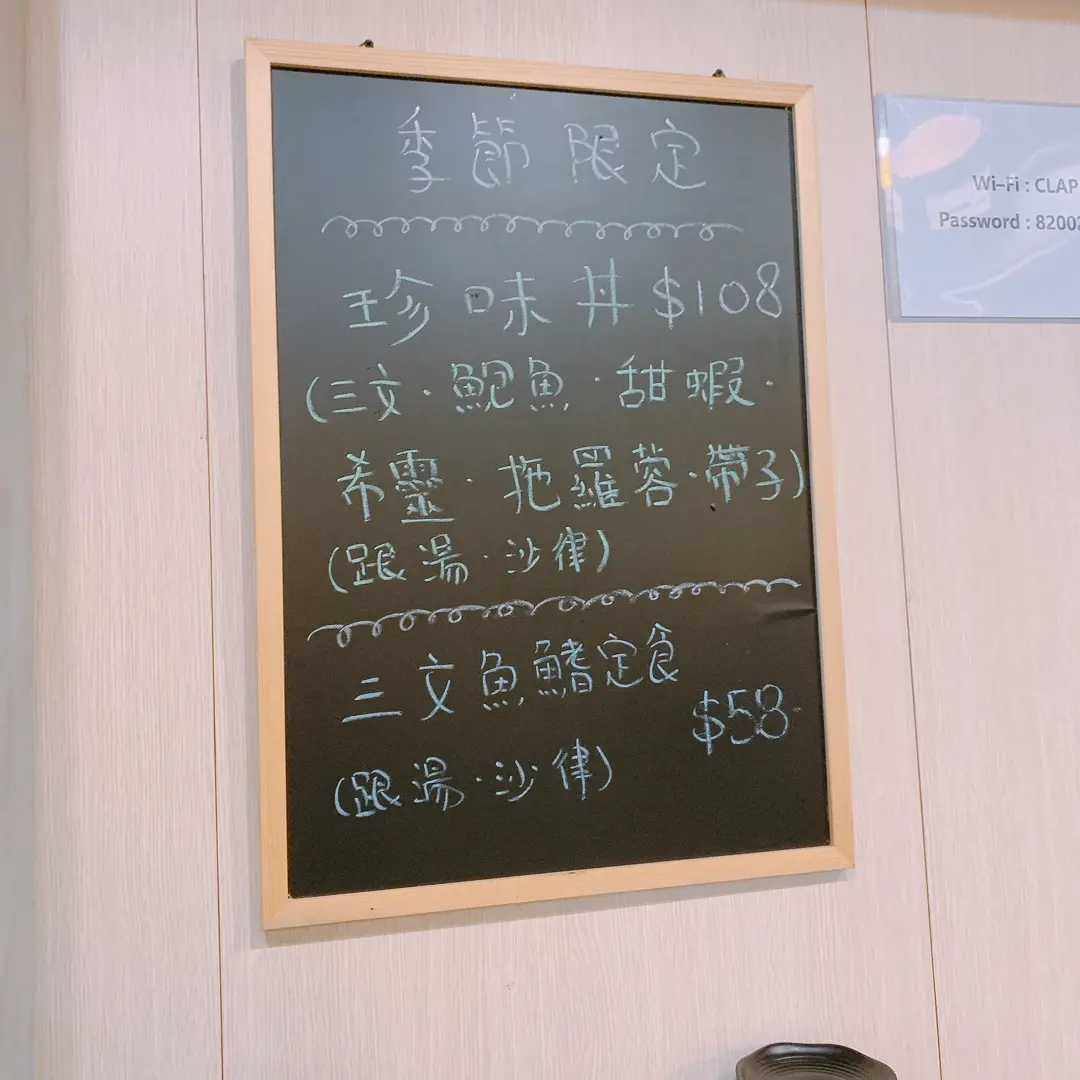 季節限定
珍味丼 $108
(三文·鯢魚·甜蝦·
希靈·拖羅蓉·帶子)
(跟湯·沙律)
三文魚鰭定食
$58-
(跟湯·沙律)
Wi-Fi : CLAP
Password : 8200